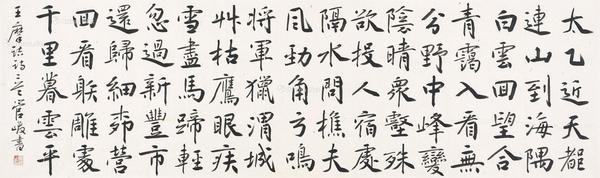 太乙近天都
連山到海隅
白雲回望合
青靄入看無
分野中峰變
陰晴衆壑殊
欲投人宿處
隔水問樵夫
風勁角弓鳴
將軍獵渭城
艸枯鷹眼疾
雪盡馬蹄輕
忽過新豐市
還歸細柳營
回看射雕處
千里暮雲平
王摩詰詩二首管峻書